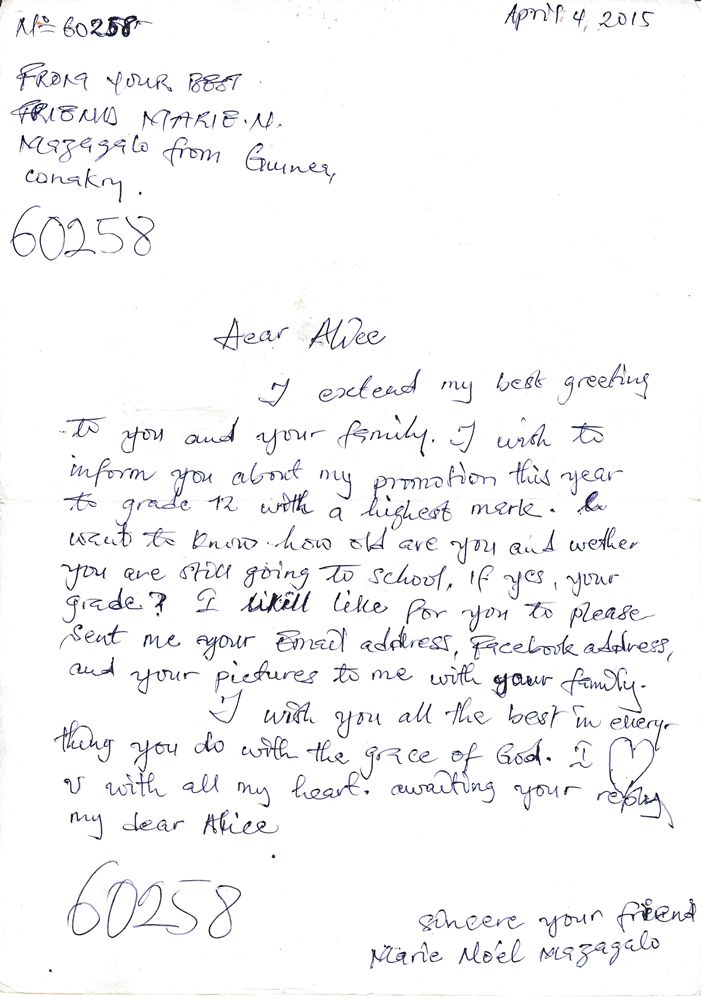 No 60258
April 4, 2015
FROM YOUR BEST
FRIEND MARIE.N.
Mazagalo from Guinea,
conakry.
60258
Dear Alice
I extend my best greeting
to you and your family. I wish to
inform you about my promotion this year
to grade 12 with a highest mark. I
want to know how old are you and wether
you are still going to school, if yes, your
grade? I like for you to please
sent me your Email address, Facebook address,
and your pictures to me with your family.
I wish you all the best in every-
thing you do with the grace of God. I ♡
U with all my heart. awaiting your reply
my dear Alice
60258
sincere your friend
Marie Noël Mazagalo